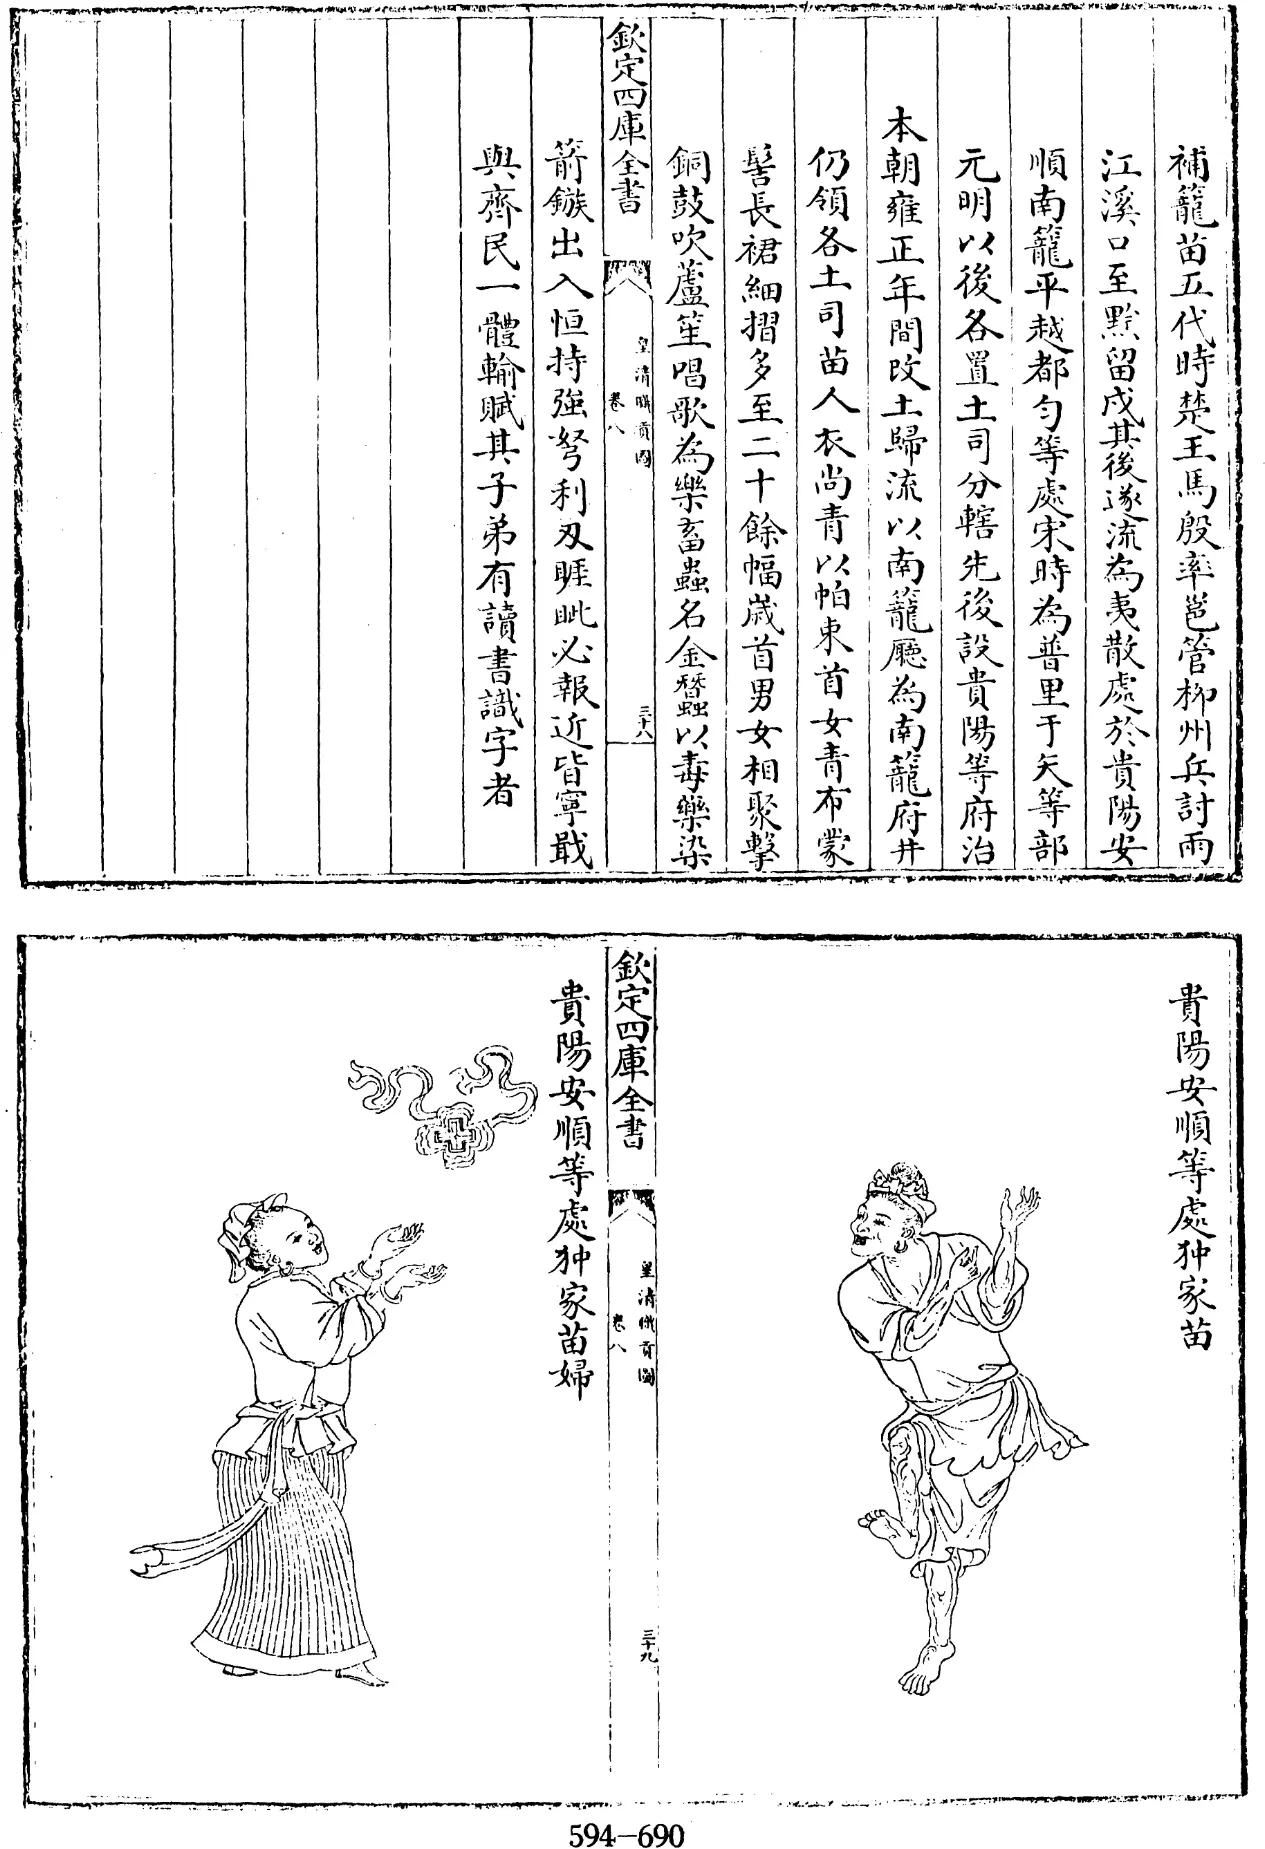 補籠苗五代時楚王馬殷率邕管柳州兵討兩
江溪口至黔留戍其後遂流為夷散處於貴陽安
順南籠平越都勻等處宋時為普里于矢等部
元明以後各置土司分轄先後設貴陽等府治
本朝雍正年間改土歸流以南籠廳為南籠府并
仍領各土司苗人衣尚青以帕束首女青布蒙
髻長裙細摺多至二十餘幅歲首男女相聚擊
銅鼓吹蘆笙唱歌為樂畜蠱名金蠶蠱以毒藥染
欽定四庫全書
皇清職貢圖
卷八
三十八
箭鏃出入恒持強弩利刃睚眦必報近皆寧戢
與齊民一體輸賦其子弟有讀書識字者
貴陽安順等處狆家苗
欽定四庫全書
皇清職貢圖
卷八
三十九
貴陽安順等處狆家苗婦
594-690